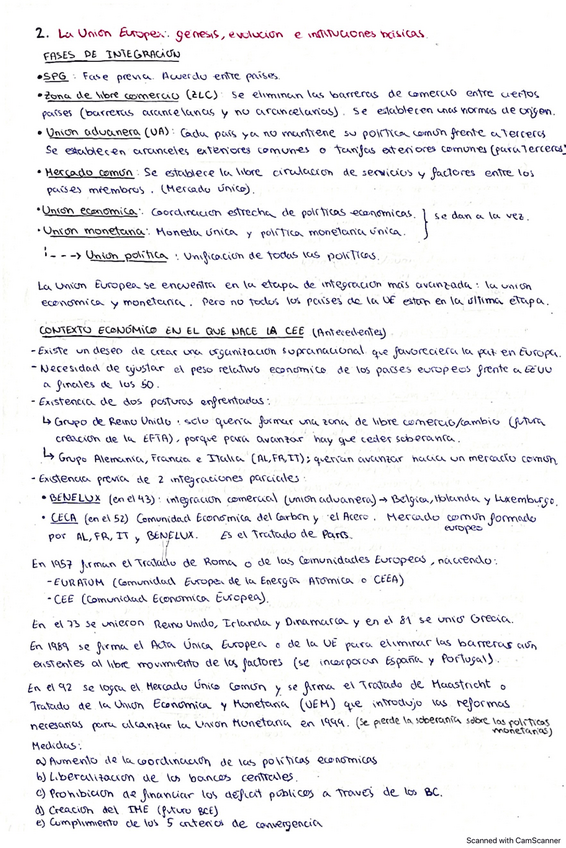 2. La Unión Europea: génesis, evolución e instituciones básicas.
FASES DE INTEGRACIÓN
• SPG : Fase previa. Acuerdo entre países.
• Zona de libre comercio (ZLC): Se eliminan las barreras de comercio entre ciertos
países (barreras arancelarias y no arancelarias). Se establecen unas normas de origen.
• Unión aduanera (UA): Cada país ya no mantiene su política común frente a terceros
Se establecen aranceles exteriores comunes o tarifas exteriores comunes (para terceros)
• Mercado común: Se establece la libre circulación de servicios y factores entre los
países miembros. (Mercado único).
• Unión económica: Coordinación estrecha de políticas económicas. } se dan a la vez.
• Unión monetaria: Moneda única y política monetaria única.
---> Unión política : Unificación de todas las políticas.
La Unión Europea se encuentra en la etapa de integración más avanzada: la unión
económica y monetaria. Pero no todos los países de la UE están en la última etapa.
CONTEXTO ECONÓMICO EN EL QUE NACE LA CEE (Antecedentes)
- Existe un deseo de crear una organización supranacional que favoreciera la paz en Europa.
- Necesidad de ajustar el peso relativo económico de los países europeos frente a EEUU
a finales de los 50.
- Existencia de dos posturas enfrentadas:
↳ Grupo de Reino Unido: solo quería formar una zona de libre comercio/cambio (futura
creación de la EFTA), porque para avanzar hay que ceder soberanía.
↳ Grupo Alemania, Francia e Italia (AL, FR, IT); querían avanzar hacia un mercado común
- Existencia previa de 2 integraciones parciales:
• BENELUX (en el 43): integración comercial (unión aduanera) → Bélgica, Holanda y Luxemburgo.
• CECA (en el 52) Comunidad Económica del Carbón y el Acero. Mercado común formado
europeo
por AL, FR, IT y BENELUX. Es el Tratado de París.
En 1957 firman el Tratado de Roma o de las Comunidades Europeas, naciendo:
- EURATOM (Comunidad Europea de la Energía Atómica o CEEA)
- CEE (Comunidad Económica Europea).
En el 73 se unieron Reino Unido, Irlanda y Dinamarca y en el 81 se unió Grecia.
En 1989 se firma el Acta Única Europea o de la UE para eliminar las barreras aún
existentes al libre movimiento de los factores (se incorporan España y Portugal).
En el 92 se logra el Mercado Único Común y se firma el Tratado de Maastricht o
Tratado de la Unión Económica y Monetaria (UEM) que introdujo las reformas
necesarias para alcanzar la Unión Monetaria en 1999. (Se pierde la soberanía sobre las políticas
monetarias)
Medidas:
a) Aumento de la coordinación de las políticas económicas
b) Liberalización de los bancos centrales.
c) Prohibición de financiar los déficit públicos a través de los BC.
d) Creación del IME (futuro BCE)
e) Cumplimiento de los 5 criterios de convergencia
Scanned with CamScanner